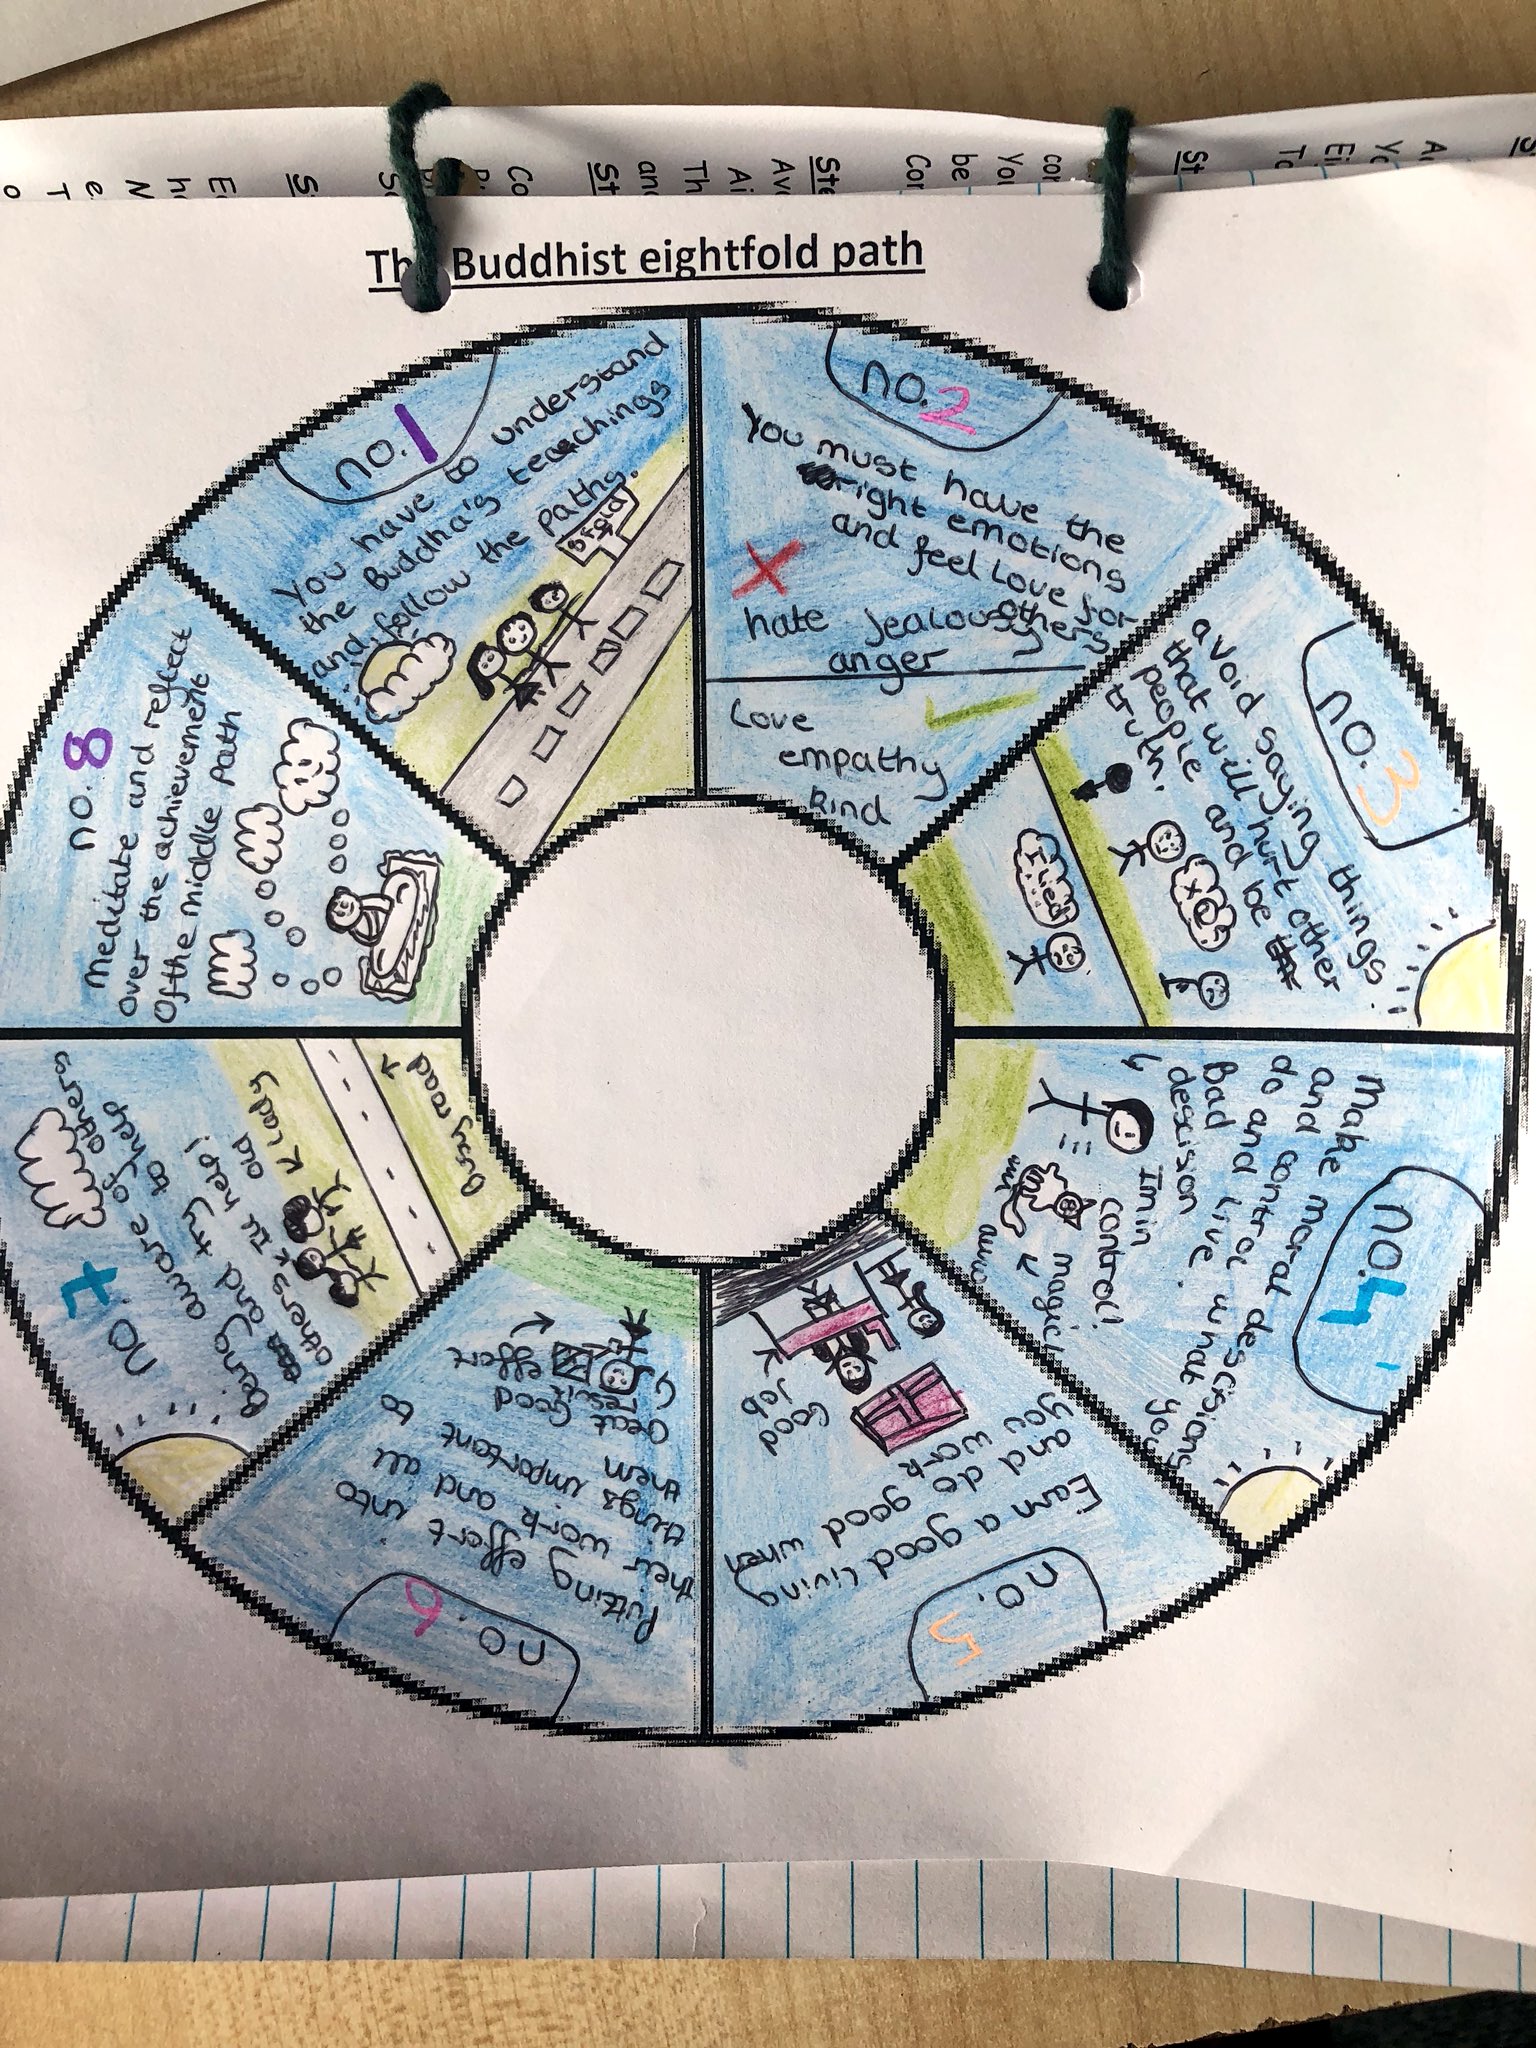 The Buddhist eightfold path
no.1
You have to understand
the Buddha's teachings
and follow the paths.
8fold
no.2
You must have the
right emotions
and feel love for
others
hate jealousy
anger
Love
empathy
kind
no.3
avoid saying things
that will hurt other
people and be
truth.
I lied
no.4
Make moral descisions
and control what you
do and live.
Bad
descision
I'm in
control!
magic!
no.5
Earn a good living
and do good when
you work
Good
job
no.6
Putting effort into
their work and all
things important to
them
Great Good
result effort
no.7
Being aware of others
and try to help
others
I'll help!
old
lady
Busy road
no. 8
Meditate and reflect
over the achievement
of the middle path